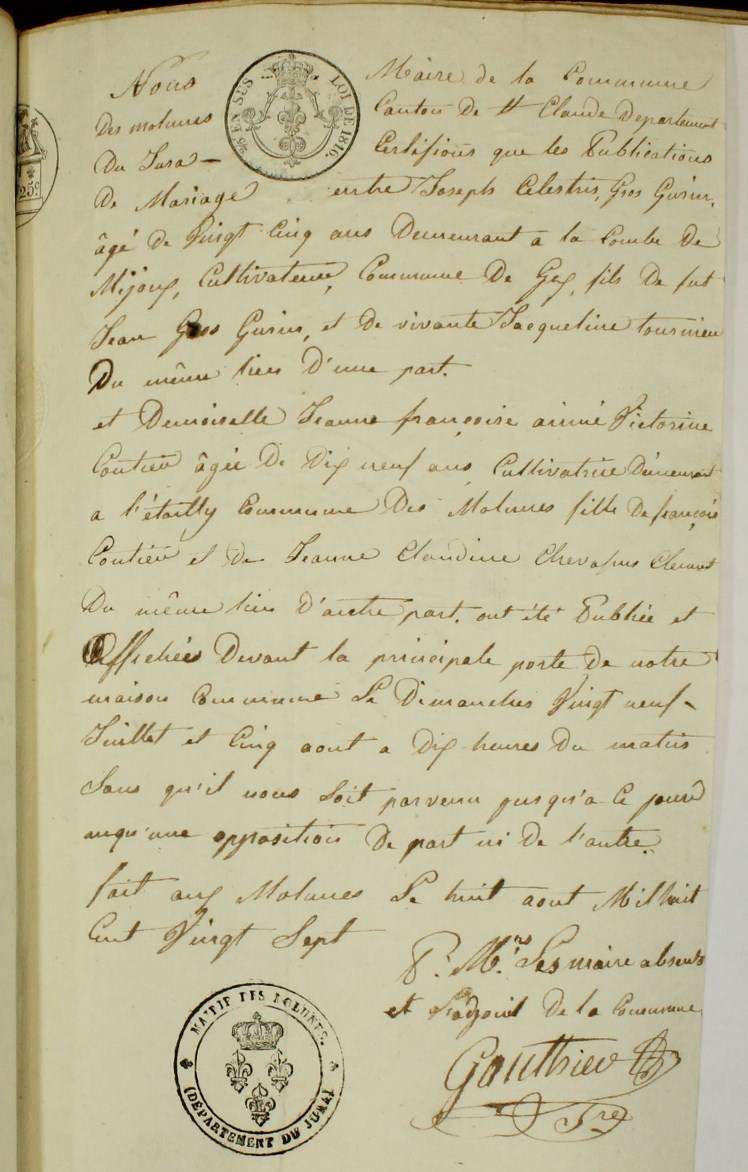 Nous Maire de la Commune
Des molunes Canton De St Claude Departement
Du Jura - Certifions que les Publications
De Mariage entre Joseph Celestin, Gros Gurin,
âgé de Vingt Cinq ans Demeurant a la Combe De
Mijoux, Cultivateur, Commune De Gex, fils De fut
Jean Gros Gurin, et De vivante Jacqueline tournier
Du même lieu D'une part.
et Demoiselle Jeanne françoise aimé Victorine
Coutier âgée De Dix neuf ans, Cultivatrice Demeurant
a l'étailly Commune Des Molunes fille De françois
Coutier et De Jeanne Claudine Chevassus Clement
Du même lieu D'autre part. ont été Publiée et
Affichée Devant la principale porte De notre
maison Commune Le Dimanches Vingt neuf
Juillet et Cinq aout a Dix heures Du matin
Sans qu'il nous Soit parvenu jusqu'a Ce jour
auqu'une opposition De part ni De l'autre.
fait aux Molunes Le huit aout Mil huit
Cent Vingt Sept
P. Mrs. Les maire absents
et L'adjoint De la Commune
Gauthier
EN SUS
LOI DE 1816
25c
MAIRIE DES MOLUNES.
(DEPARTEMENT DU JURA)